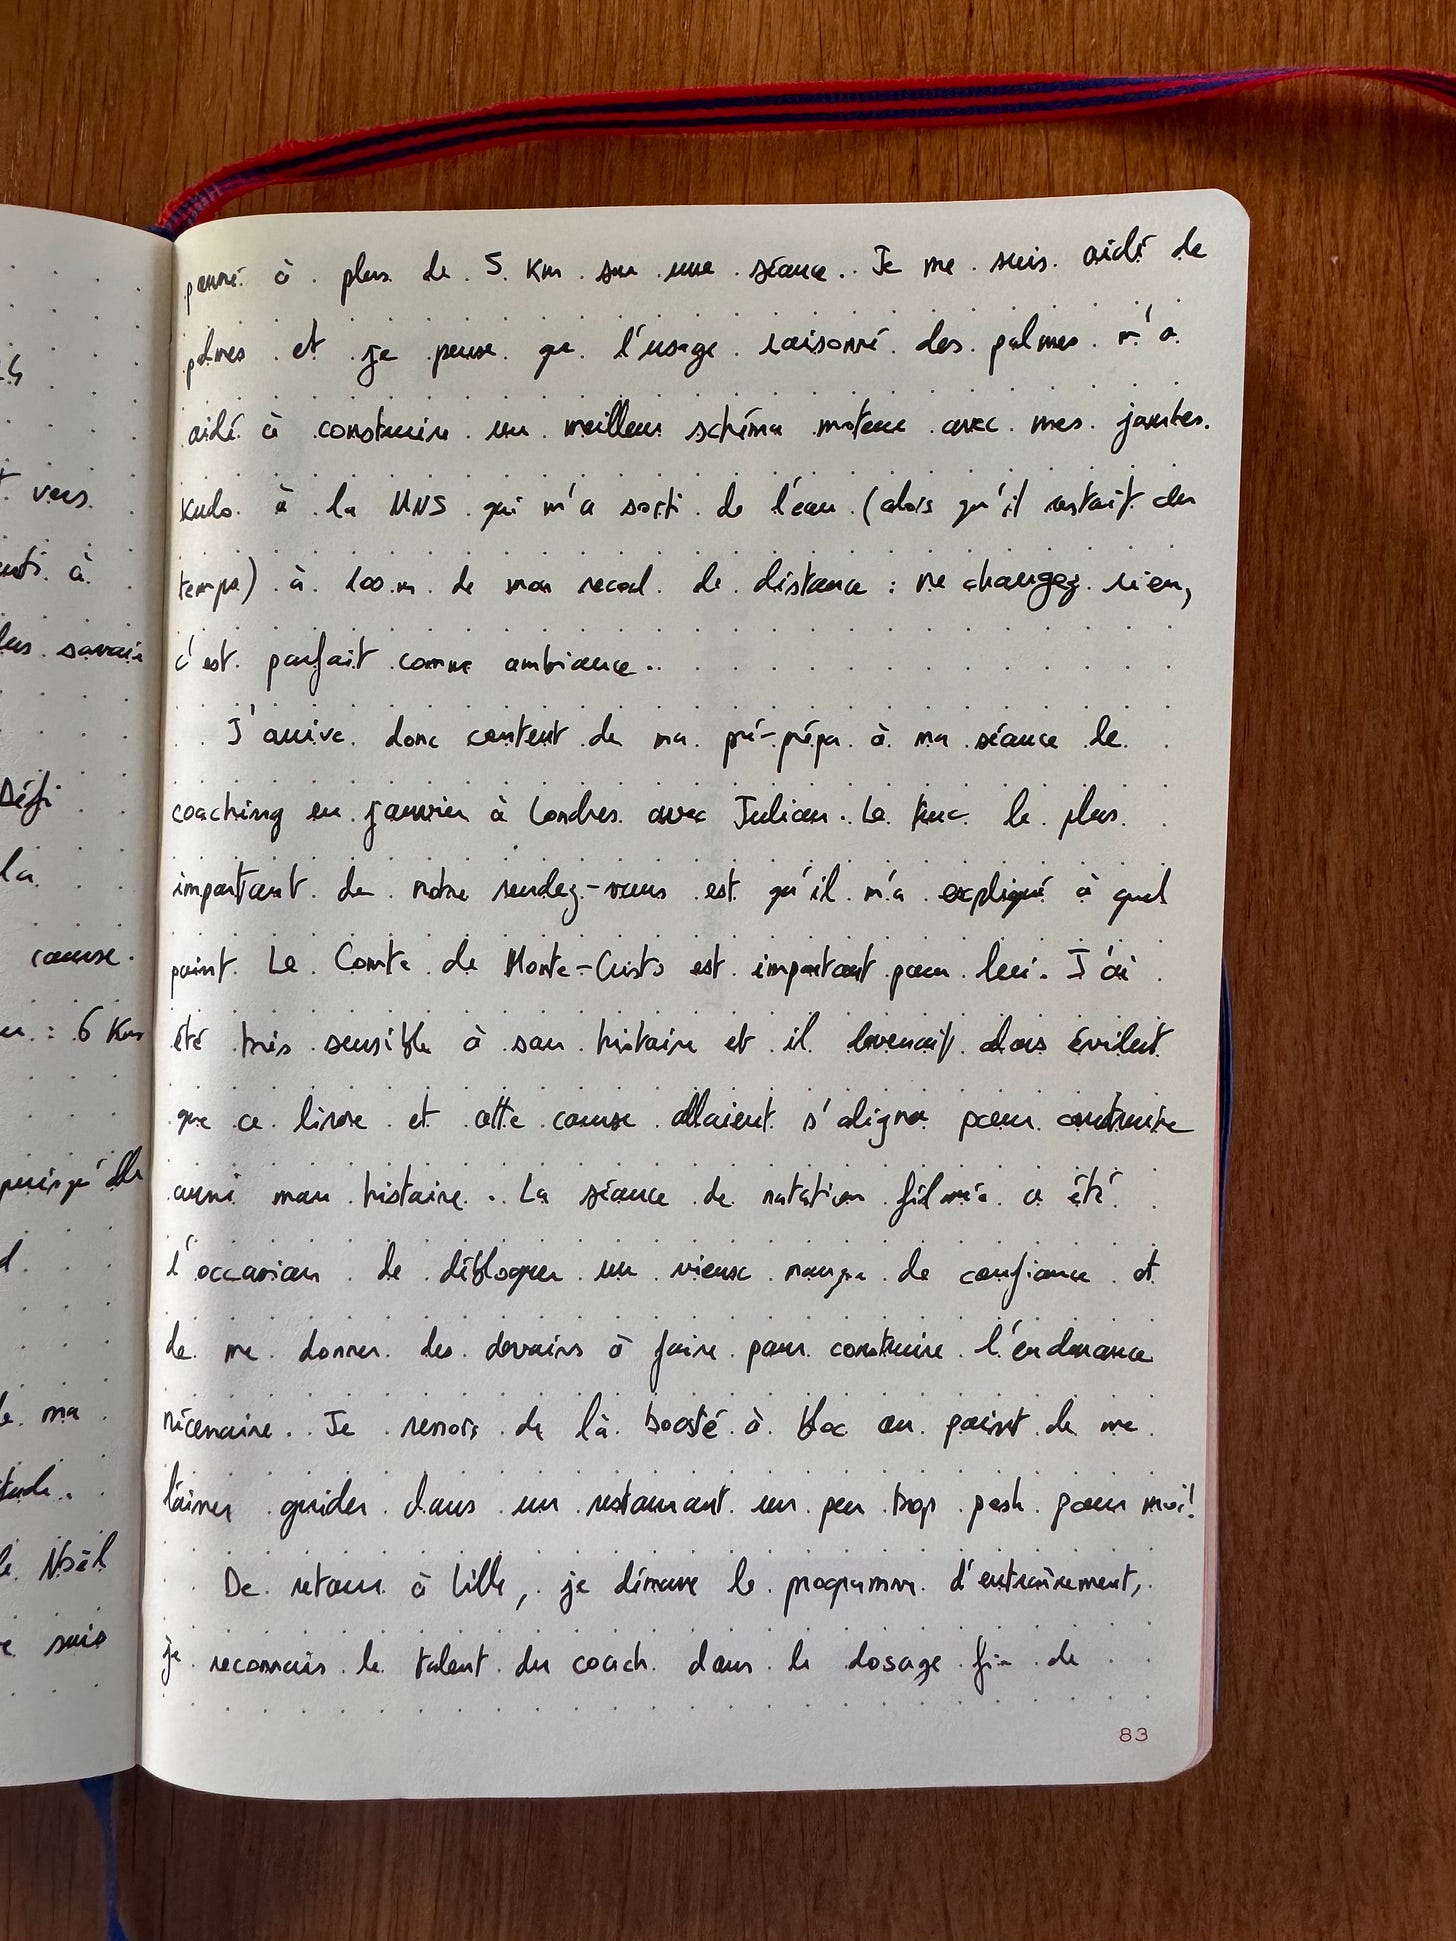 24
t vers
à
plus savoir
Défi
la
course.
: 6 Km
puisqu'elle
de ma
de Noël
suis
passé à plus de 5 Km sur une séance. Je me suis aidé de
palmes et je pense que l'usage raisonné des palmes m'a
aidé à construire un meilleur schéma moteur avec mes jambes.
Kudo à la MNS qui m'a sorti de l'eau (alors qu'il restait du
temps) à 100 m de mon record de distance : ne changez rien,
c'est parfait comme ambiance..
J'arrive donc content de ma pré-prépa à ma séance de
coaching en janvier à Londres avec Julian. Le truc le plus
important de notre rendez-vous est qu'il m'a expliqué à quel
point Le Comte de Monte-Cristo est important pour lui. J'ai
été très sensible à son histoire et il devenait alors évident
que ce livre et cette course allaient s'aligner pour construire
aussi mon histoire.. La séance de natation filmée a été
l'occasion de débloquer un vieux manque de confiance et
de me donner des devoirs à faire pour construire l'endurance
nécessaire. Je ressors de là boosté à bloc au point de me
laisser guider dans un restaurant un peu trop posh pour moi!
De retour à Lille, je démarre le programme d'entraînement,
je reconnais le talent du coach dans le dosage fin de
83